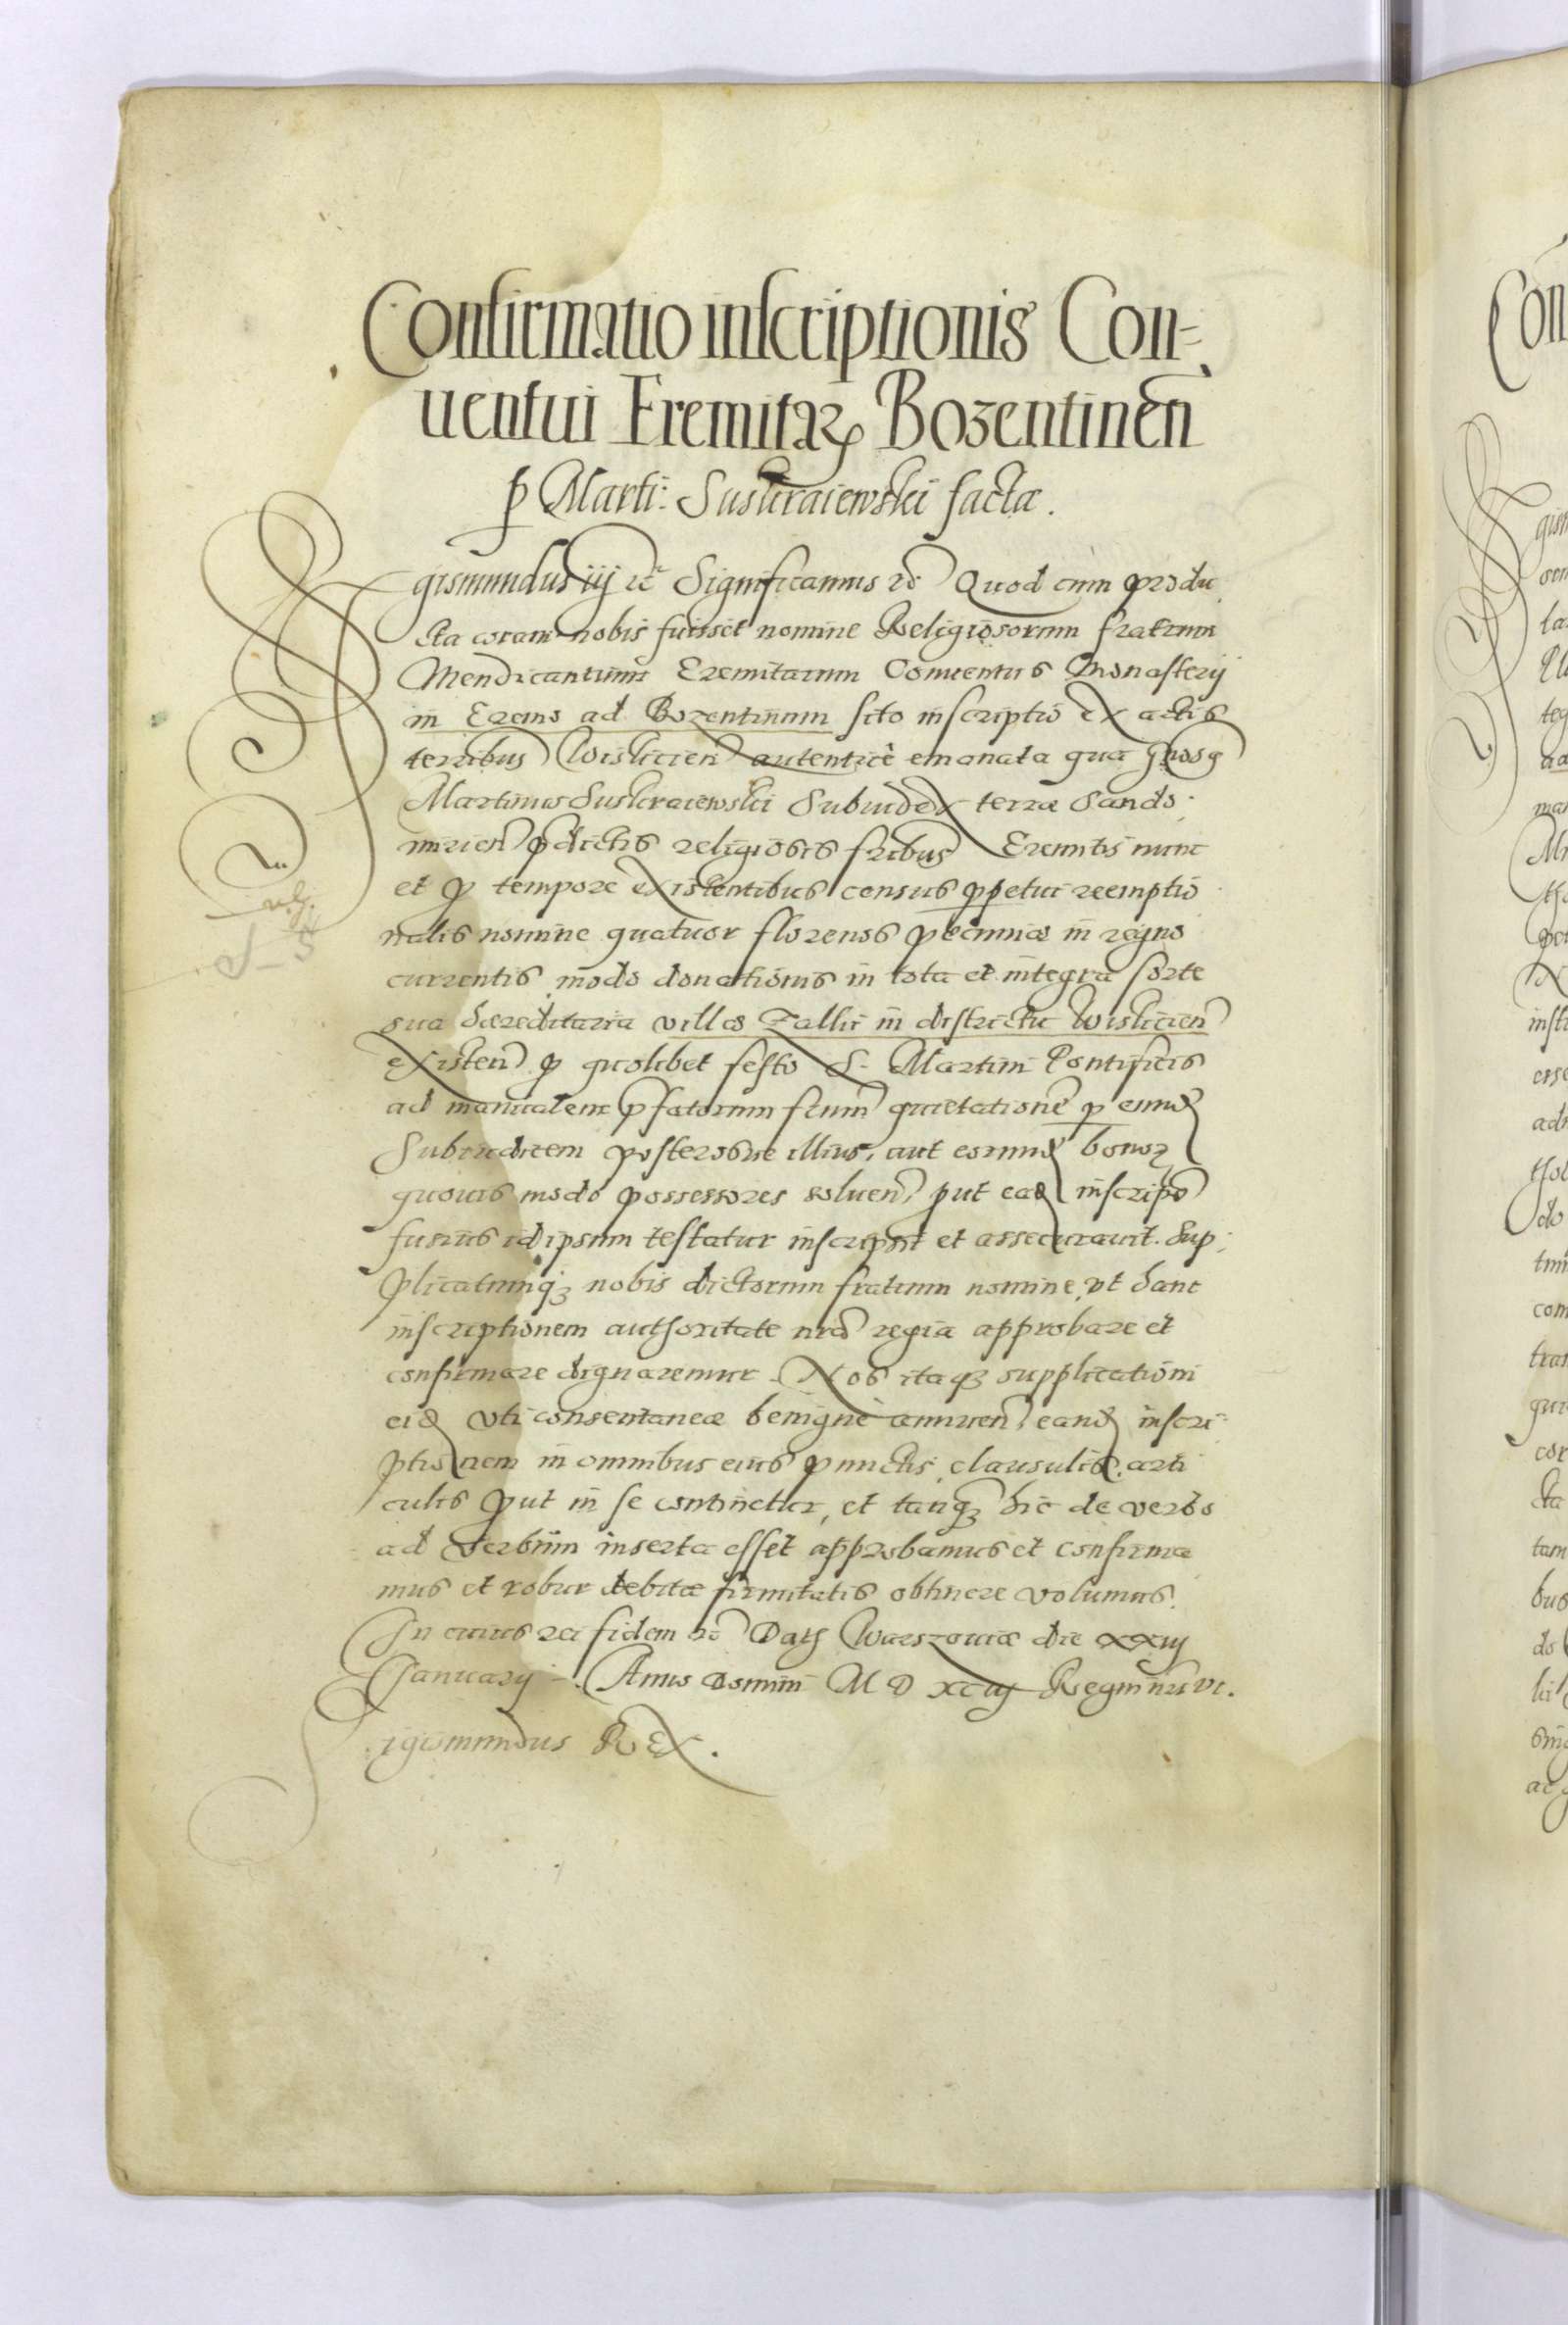 Confirmatio inscriptionis Con=
uentui Eremitaꝝ Bozentinen̄
p̱ Marti: Suskraiewski facta.
Sigismundus iij ꝛc̄ Significamus ꝛc̄ Quod cum produ
cta coram nobis fuisset nomine Religiosorum fratrum
Mendicantium Eremitarum Conuentus Monasterij
in Eremo ad Bozentinum sito inscriptio ex actis
terrībus Wislicien̄ autenticè emanata qua Gnosꝯ
Martinus Suskraiewski Subiudex terræ Sando.
mirien̄ p̄dictis religiosis fr̄ibus Eremitis nunc
et ꝓ tempore existentibus census ꝑpetui reemptio
nalis nomine quatuor florenos pecuniæ in regno
currentis modo donationis in tota et integra sorte
sua hæreditaria villæ Zallii in districtu Wislicien̄
existen̄ ꝓ quolibet festo S. Martini Pontificis
ad manualem p̄fatorum fr̄um quietationē ꝑ eund
Subiudicem posterosue illius, aut eorund bonoꝝ
quouis modo possessores soluen̄, ꝓut ead inscripō
fusius id ipsum testatur inscripsit et assecurauit. Sup.
plicatumqꝫ nobis dictorum fratrum nomine, vt hanc
inscriptionem authoritate nr̄a regia approbare et
confirmare dignaremur. Nos itaqꝫ supplicationi
eid vti consentaneæ benignè annuen̄, eand inscri-
ptionem in omnibus eius punctis, clausulis, arti
culis ꝓut in se continetur, et tanqꝫ hic de verbo
ad verbum inserta esset approbamus et confirma
mus et robur debitæ firmitatis obtinere volumus.
In cuius rei fidem ꝛc̄ Datꝭ Warszouiæ die xxiij
Januarij Anno Domini M D xciij Regni nr̄i vi.
Sigismundus Rex.